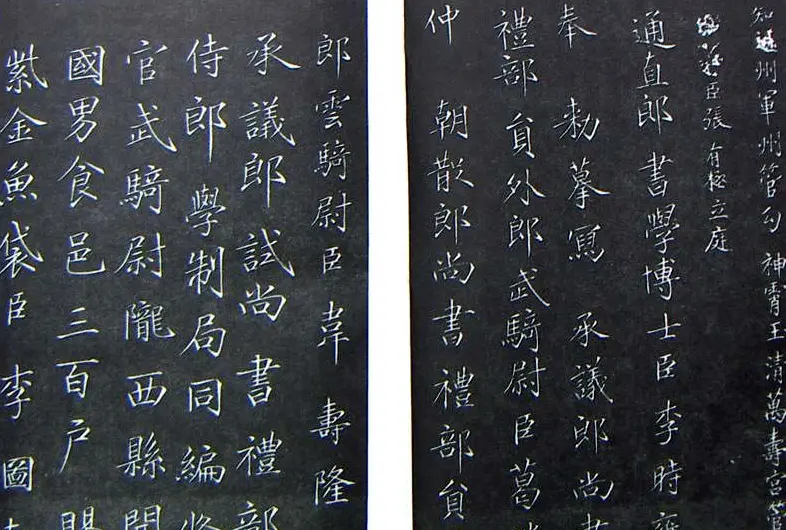 知通州軍州管勾神霄玉清萬壽宮管
臣張有極立庭
通直郎書學博士臣李時雍
奉 勑摹寫 承議郎尚書
禮部員外郎武騎尉臣葛
仲 朝散郎尚書禮部員
郎雲騎尉臣韋壽隆
承議郎試尚書禮部
侍郎學制局同編修
官武騎尉隴西縣開
國男食邑三百户賜
紫金魚袋臣李圖